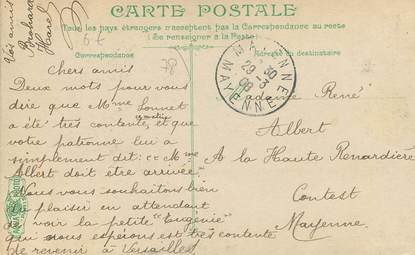 CARTE POSTALE
Tous les pays étrangers n'acceptent pas la Correspondance au recto
(Se renseigner à la Poste)
Correspondance
Adresse du destinataire
Vos amis
Harel
78
MAYENNE
MAYENNE
Chers amis
Deux mots pour vous
dire que Mme Sonnet
a été très contente, et que
votre patronne lui a
simplement dit: "Mme
Albert doit être arrivée"
Nous vous souhaitons bien
du plaisir en attendant
de voir la petite "Eugénie"
qui nous espérons est très contente
de revenir à Versailles
Madame René
Albert
A la Haute Renardière
Contest
Mayenne.